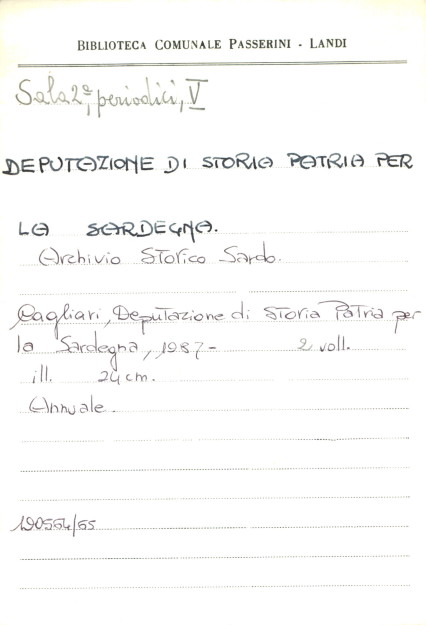 BIBLIOTECA COMUNALE PASSERINI - LANDI
Sala 2ª, periodici, V
DEPUTAZIONE DI STORIA PATRIA PER
LA SARDEGNA.
Archivio Storico Sardo.
Cagliari, Deputazione di Storia Patria per
la Sardegna, 1987- 2 voll.
ill. 24 cm.
Annuale.
190554/55